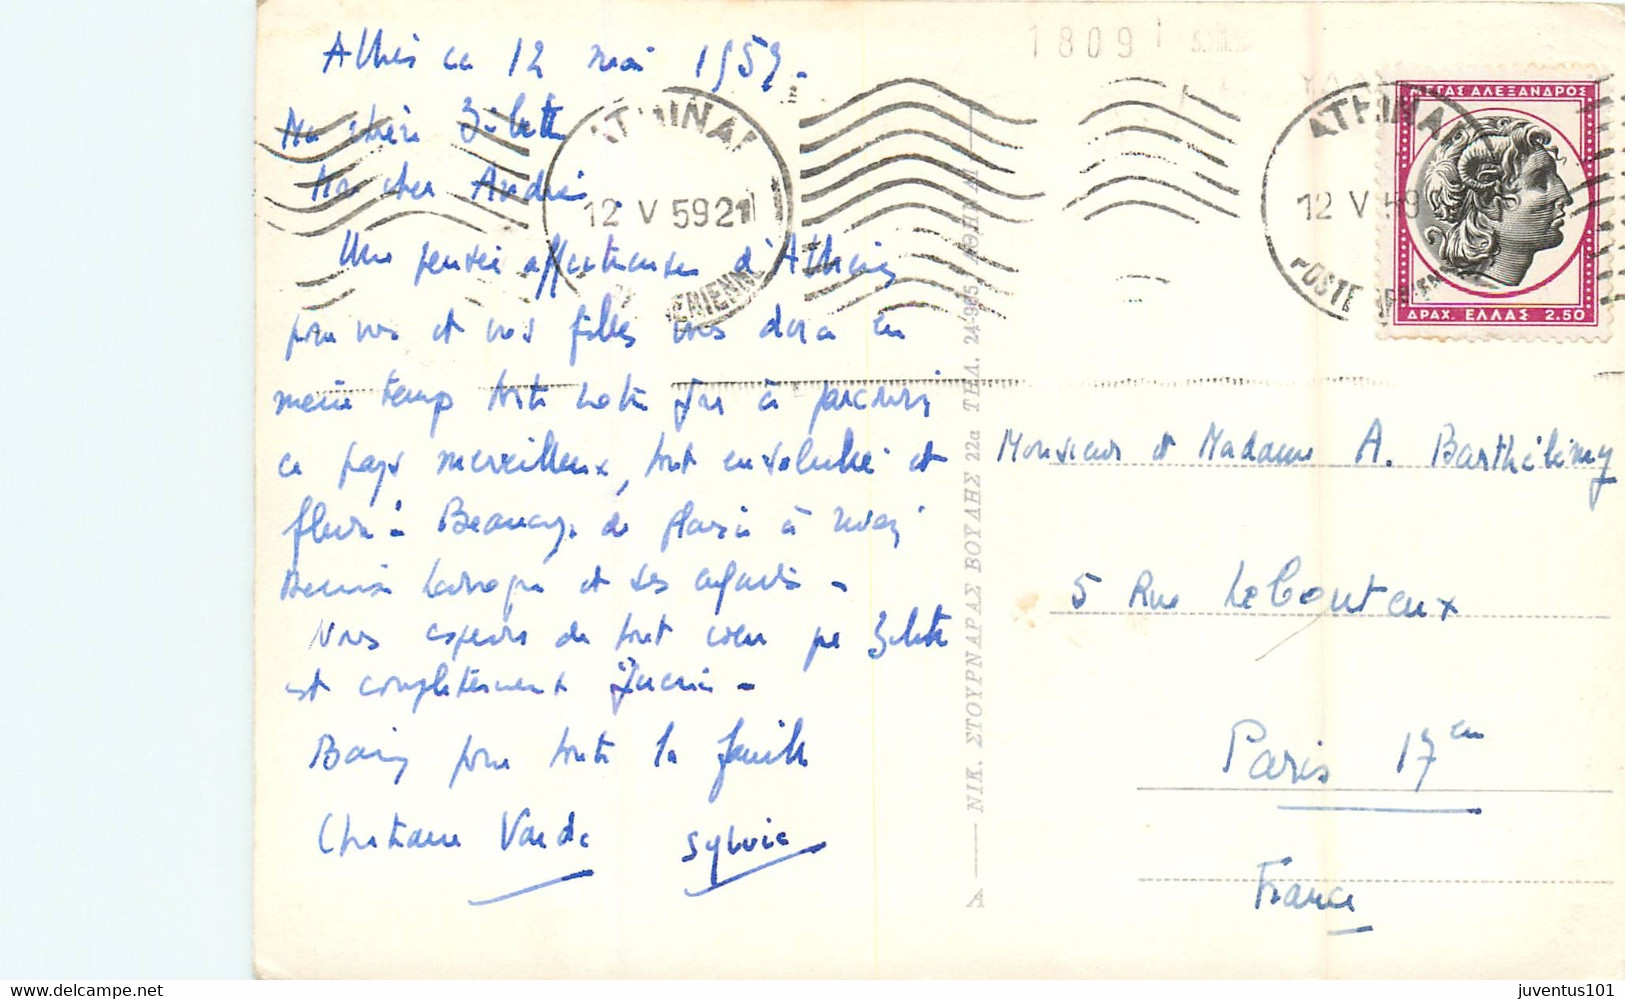 1809
12 mai 1959.
Ma chère
Mon cher André.
Une pensée affectueuse d'Athènes
pour vous et vos filles vous dira en
même temps toute notre joie à parcourir
ce pays merveilleux, tout ensoleillé et
fleuri. Beaucoup de plaisir à
et ses
Nous espérons de tout cœur que
est complètement
pour toute la famille
Christiane sylvie
ATHINAI
12 V 59 21
ATHINAI
12 V 59
POSTE
ΜΕΓΑΣ ΑΛΕΞΑΝΔΡΟΣ
ΔΡΑΧ. ΕΛΛΑΣ 2.50
Α — ΝΙΚ. ΣΤΟΥΡΝΑΡΑΣ ΒΟΥΛΗΣ 22α ΤΗΛ. 24-995 ΑΘΗΝΑΙ
Monsieur et Madame A. Barthélemy
5 Rue LeBouteux
Paris 17em
France
www.delcampe.net
juventus101